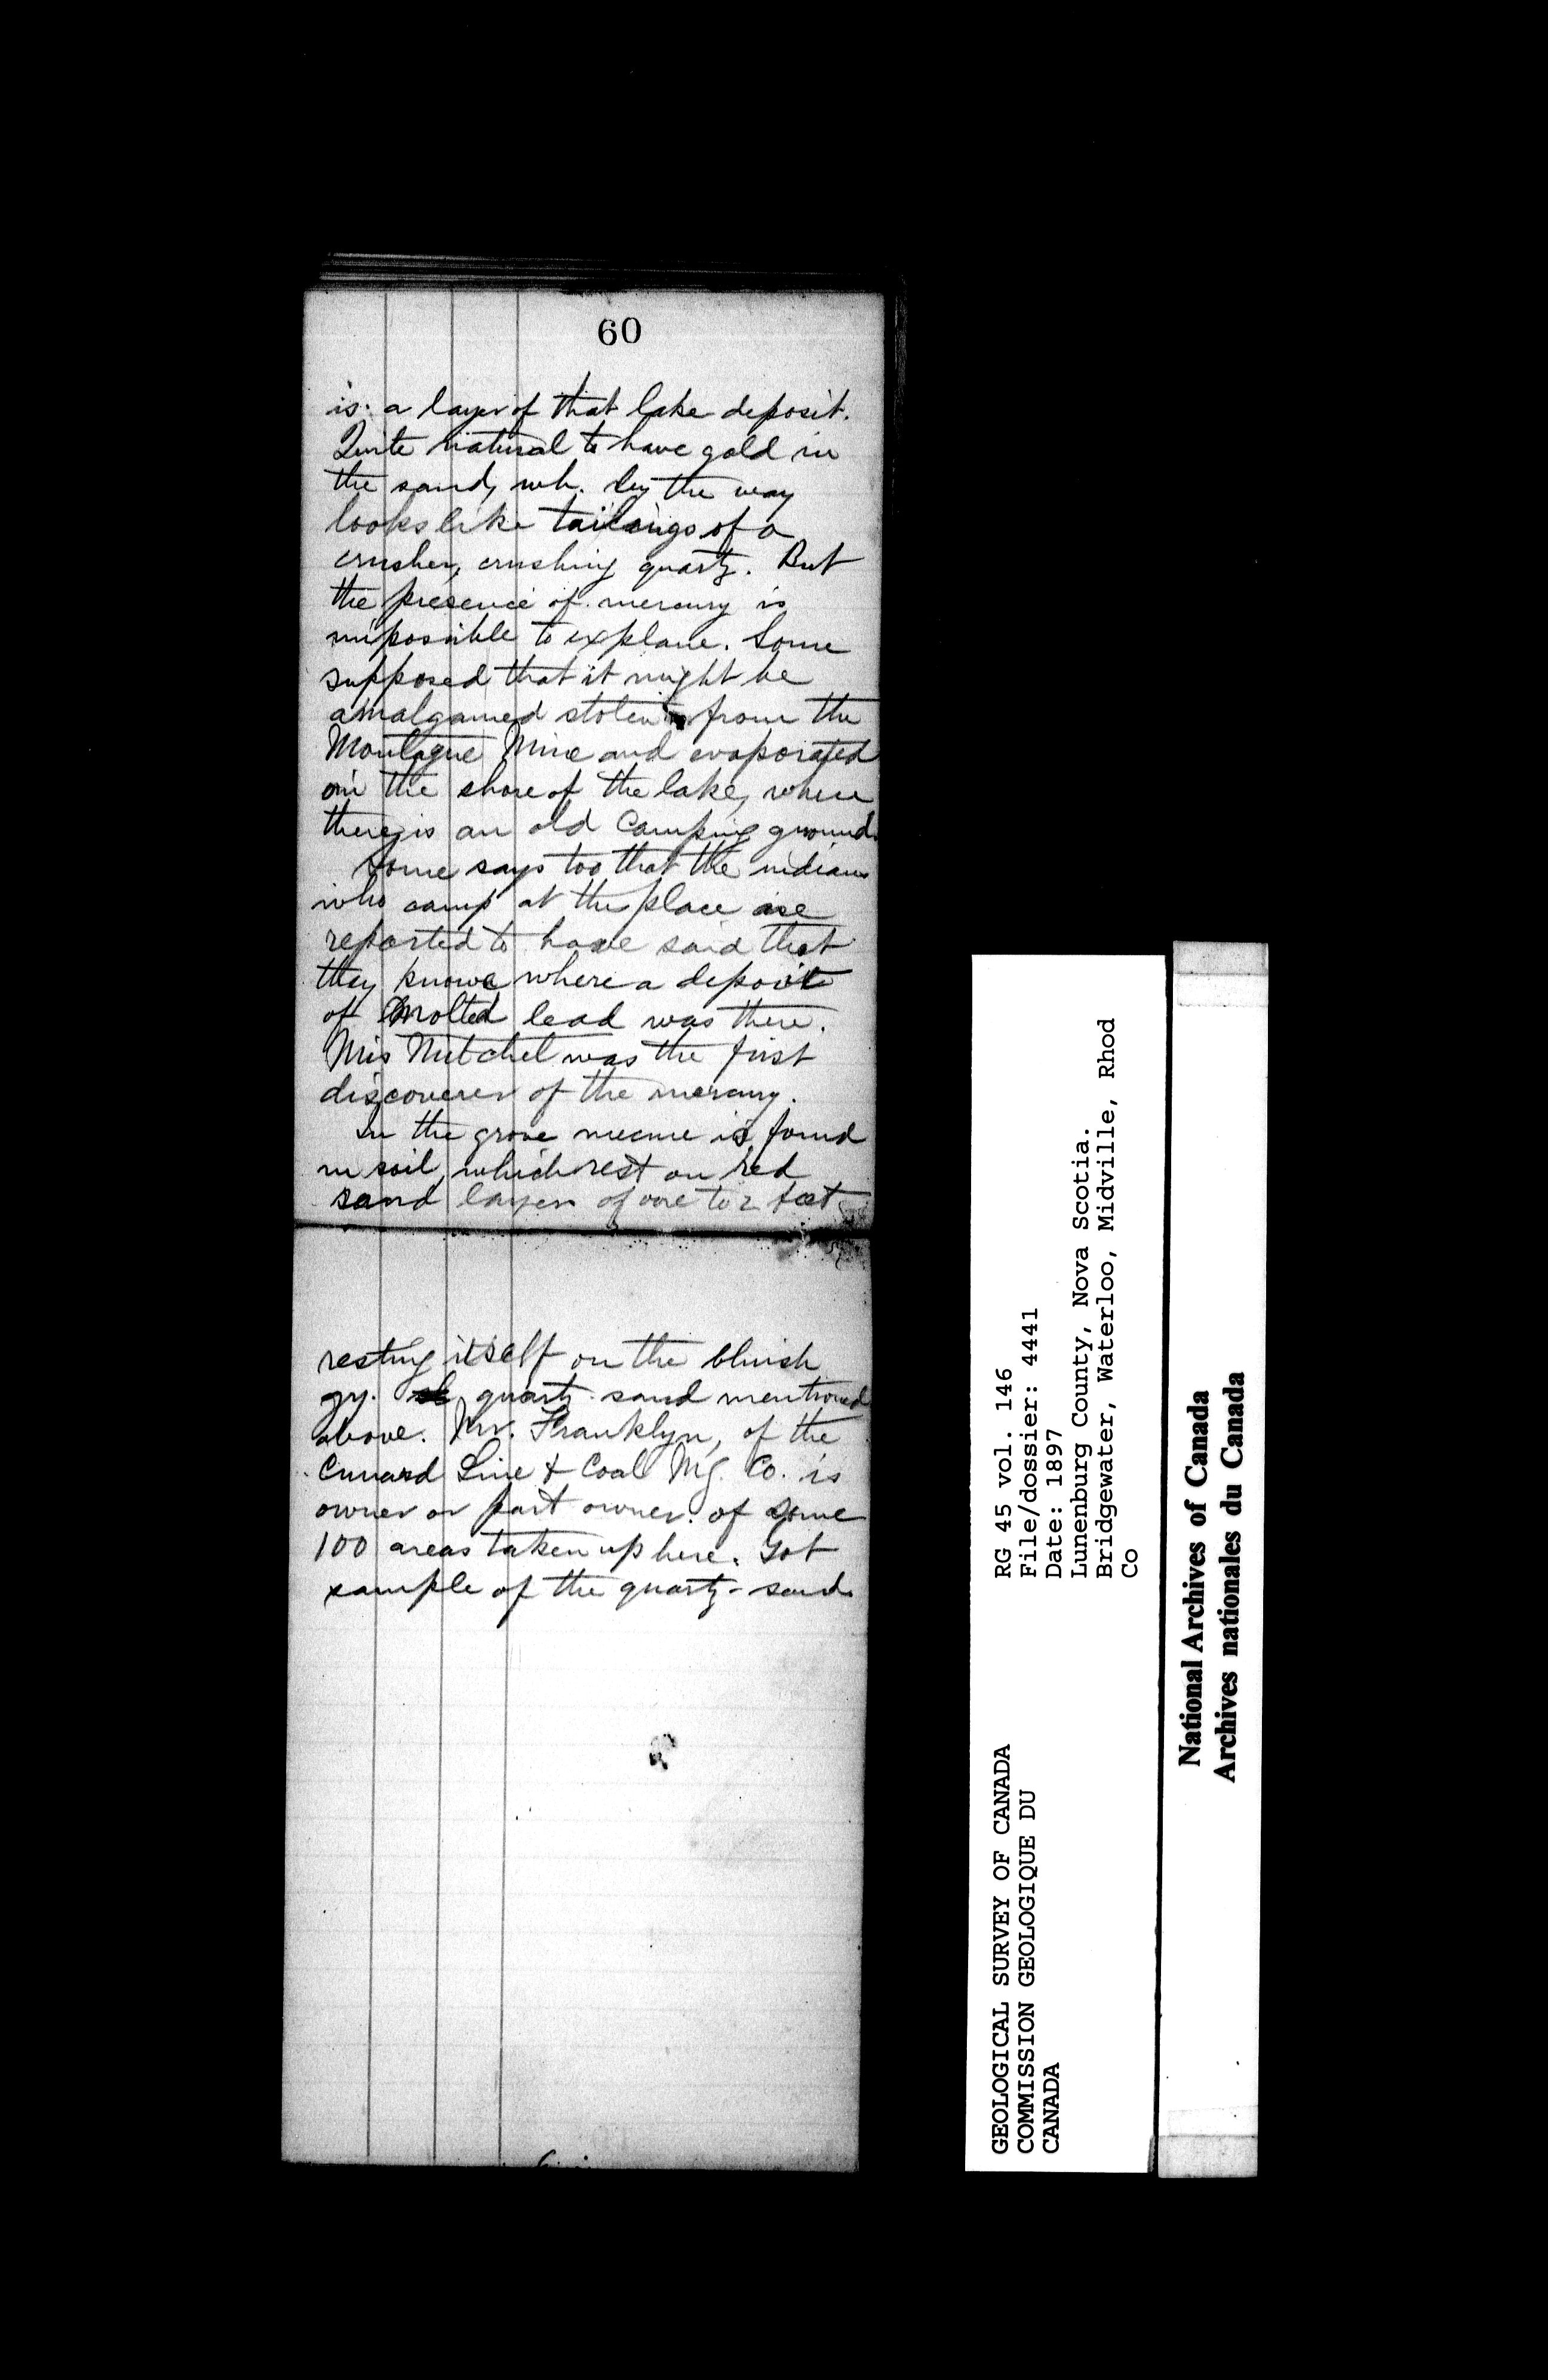 60
is a layer of that lake deposit.
Quite natural to have gold in
the sand, wh. by the way
looks like tailings of a
crusher, crushing quartz. But
the presence of mercury is
impossible to explane. Some
supposed that it might be
amalgamed stolen from the
Montague Mine and evaporated
on the shore of the lake, where
there is an old Camping ground.
Some says too that the indians
who camp at the place are
reported to have said that
they knowe where a deposit
of molted lead was there.
Mis Mitchel was the first
discoverer of the mercury.
In the grove is found
in soil, which rest on red
sand layer of one to 2 feet
resting itself on the bluish
gy. quartz sand mentioned
above. Mr. Franklyn, of the
Cunard Line & Coal Mg. Co. is
owner or part owner of some
100 areas taken up here. Got
sample of the quartz-sand.
GEOLOGICAL SURVEY OF CANADA
COMMISSION GEOLOGIQUE DU
CANADA
RG 45 vol. 146
File/dossier: 4441
Date: 1897
Lunenburg County, Nova Scotia.
Bridgewater, Waterloo, Midville, Rhod
Co
National Archives of Canada
Archives nationales du Canada